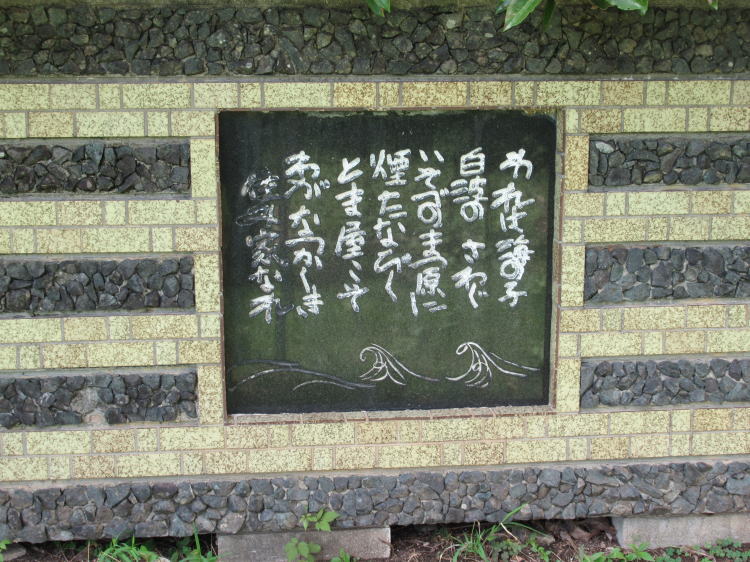 われは海の子
白浪の さわぐ
いそべの松原に
煙たなびく
とま屋こそ
わがなつかしき
住み家なれ